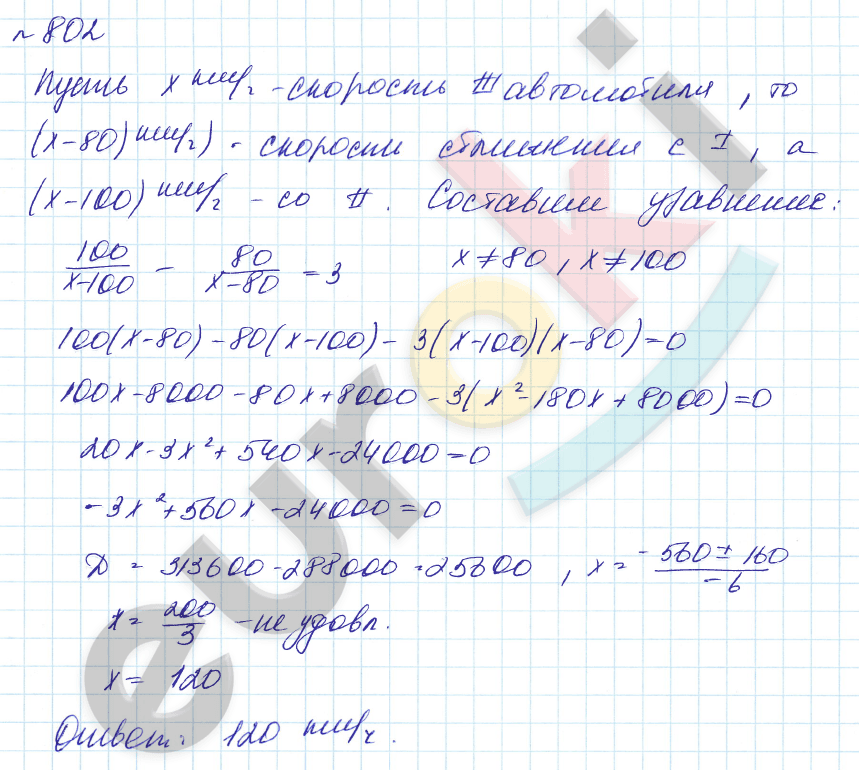 № 802
Пусть x км/ч - скорость III автомобиля, то
(x-80) км/ч) - скорость сближения с I, а
(x-100) км/ч - со II. Составим уравнение:
100/(x-100) - 80/(x-80) = 3    x≠80, x≠100
100(x-80)-80(x-100)-3(x-100)(x-80)=0
100x-8000-80x+8000-3(x²-180x+8000)=0
20x-3x²+540x-24000=0
-3x²+560x-24000=0
Д = 313600-288000=25600, x = (-560±160)/(-6)
x = 200/3 - не удовл.
x = 120
Ответ: 120 км/ч.
euroki